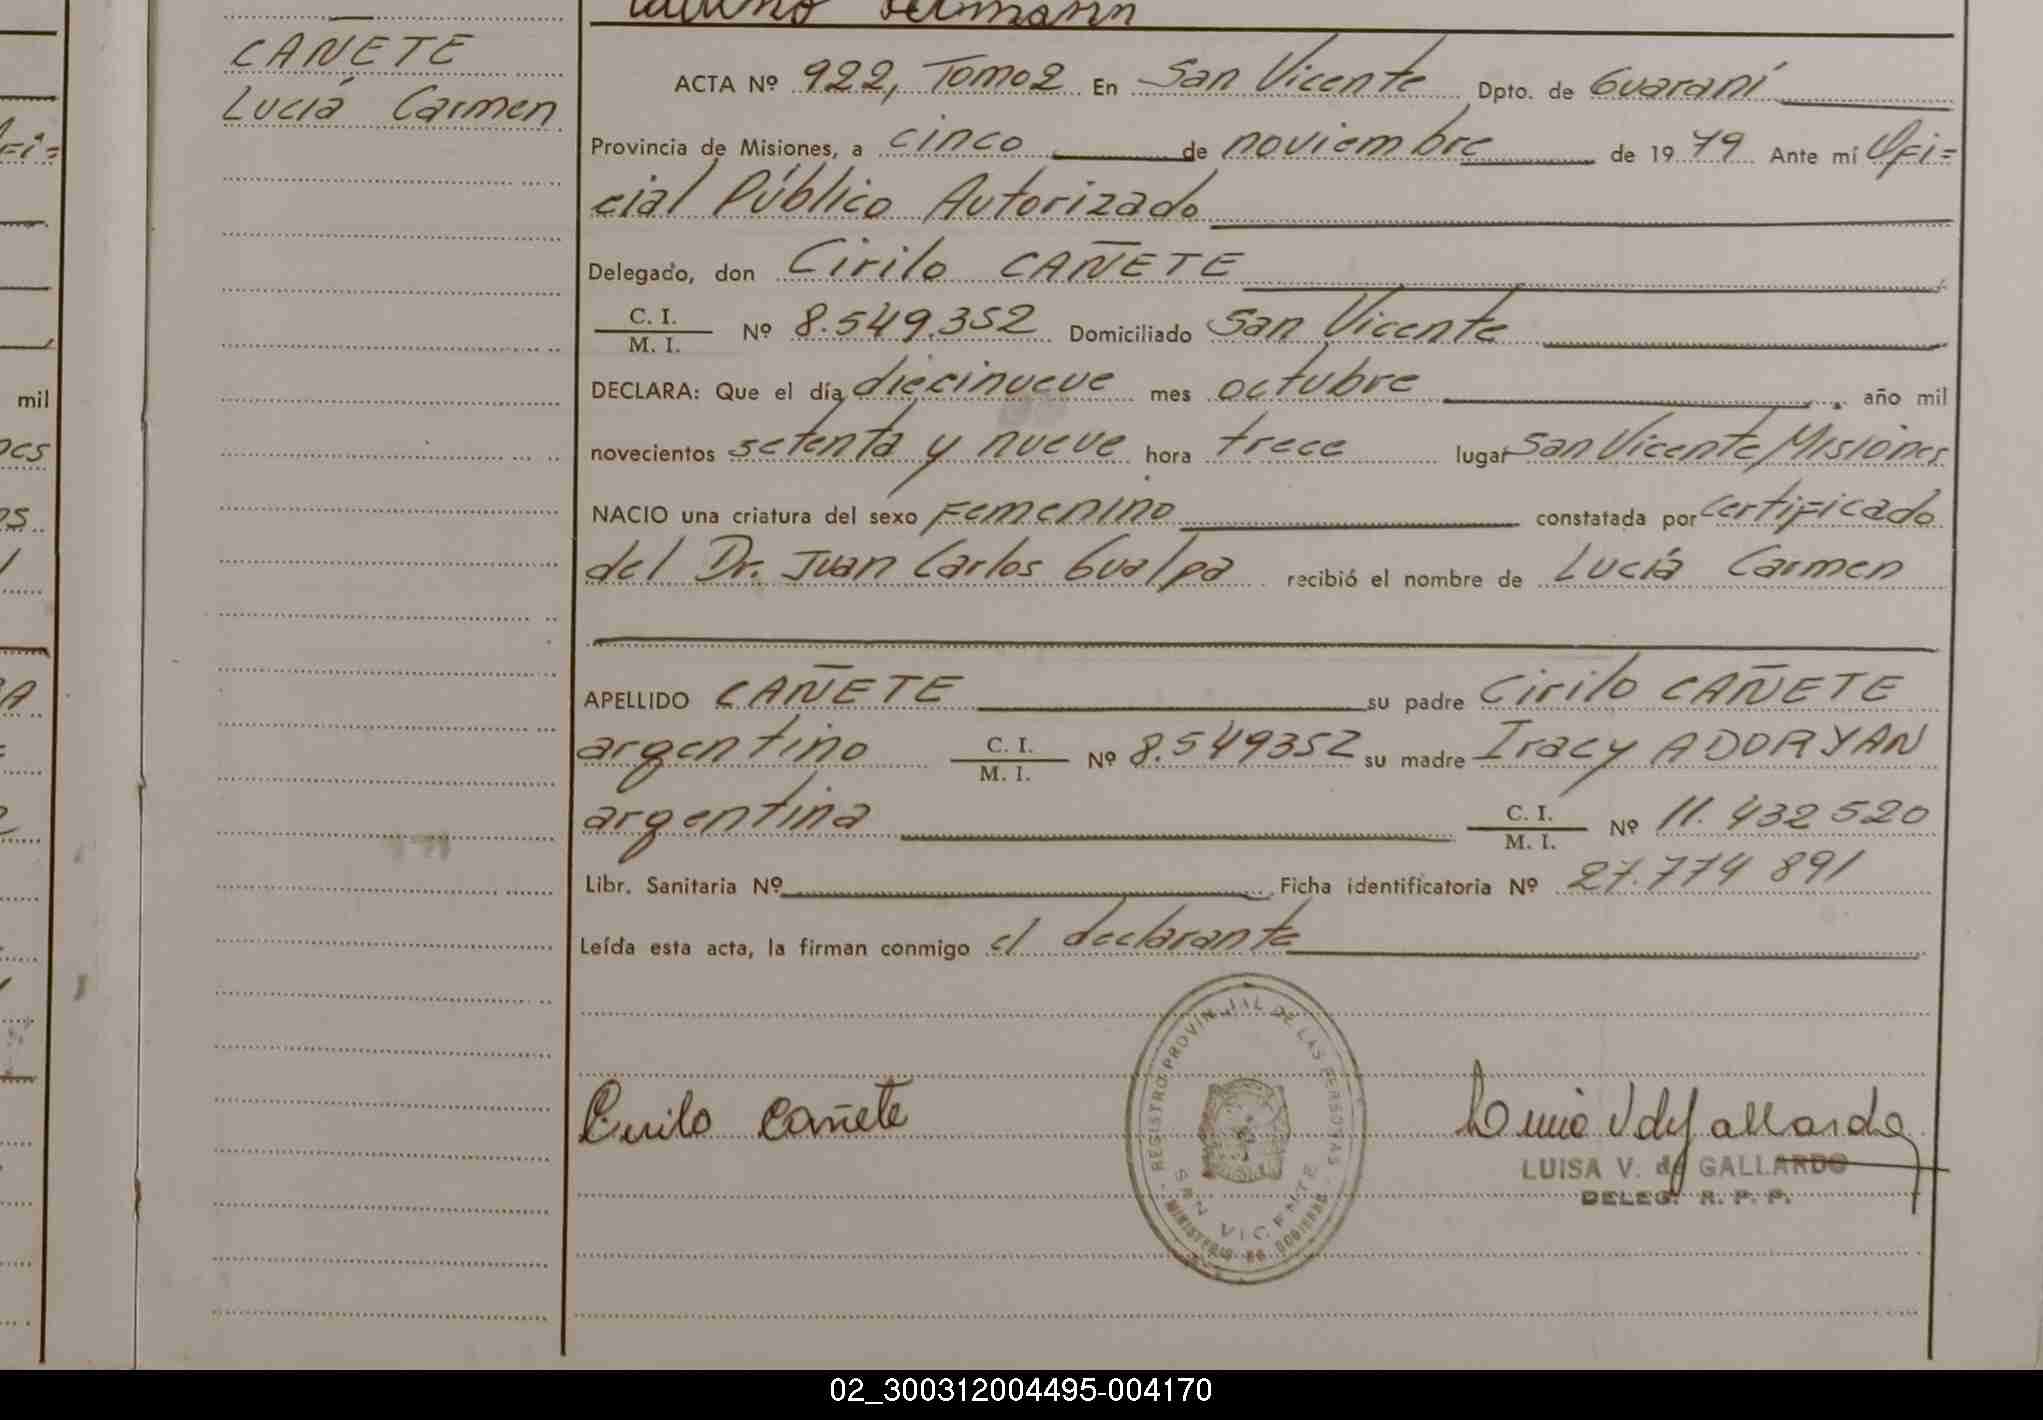 CAÑETE
Lucía Carmen
ACTA Nº 922, Tomo 2 En San Vicente Dpto. de Guaraní
Provincia de Misiones, a cinco de noviembre de 1979 Ante mí Ofi=
cial Público Autorizado
Delegado, don Cirilo CAÑETE
C. I.
M. I.
Nº 8.549.352 Domiciliado San Vicente
DECLARA: Que el día diecinueve mes octubre año mil
novecientos setenta y nueve hora trece lugar San Vicente, Misiones
NACIO una criatura del sexo Femenino constatada por certificado
del Dr. Juan Carlos Gualpa recibió el nombre de Lucía Carmen
APELLIDO CAÑETE su padre Cirilo CAÑETE
argentino C. I. M. I. Nº 8.549352 su madre Iracy ADORYAN
argentina C. I. M. I. Nº 11.432520
Libr. Sanitaria Nº Ficha identificatoria Nº 27.774891
Leída esta acta, la firman conmigo el declarante
Cirilo Cañete
REGISTRO PROVINCIAL DE LAS PERSONAS
SAN VICENTE
MINISTERIO DE GOBIERNO
Luisa V de Gallardo
LUISA V. de GALLARDO
DELEG. R. P. P.
mil
02_300312004495-004170